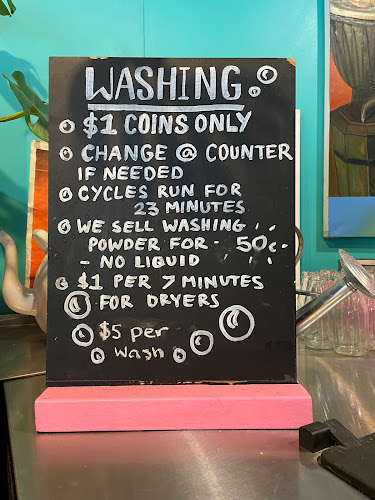 WASHING
$1 COINS ONLY
CHANGE @ COUNTER
IF NEEDED
CYCLES RUN FOR
23 MINUTES
WE SELL WASHING
POWDER FOR - 50c
- NO LIQUID
$1 PER 7 MINUTES
FOR DRYERS
$5 per
wash